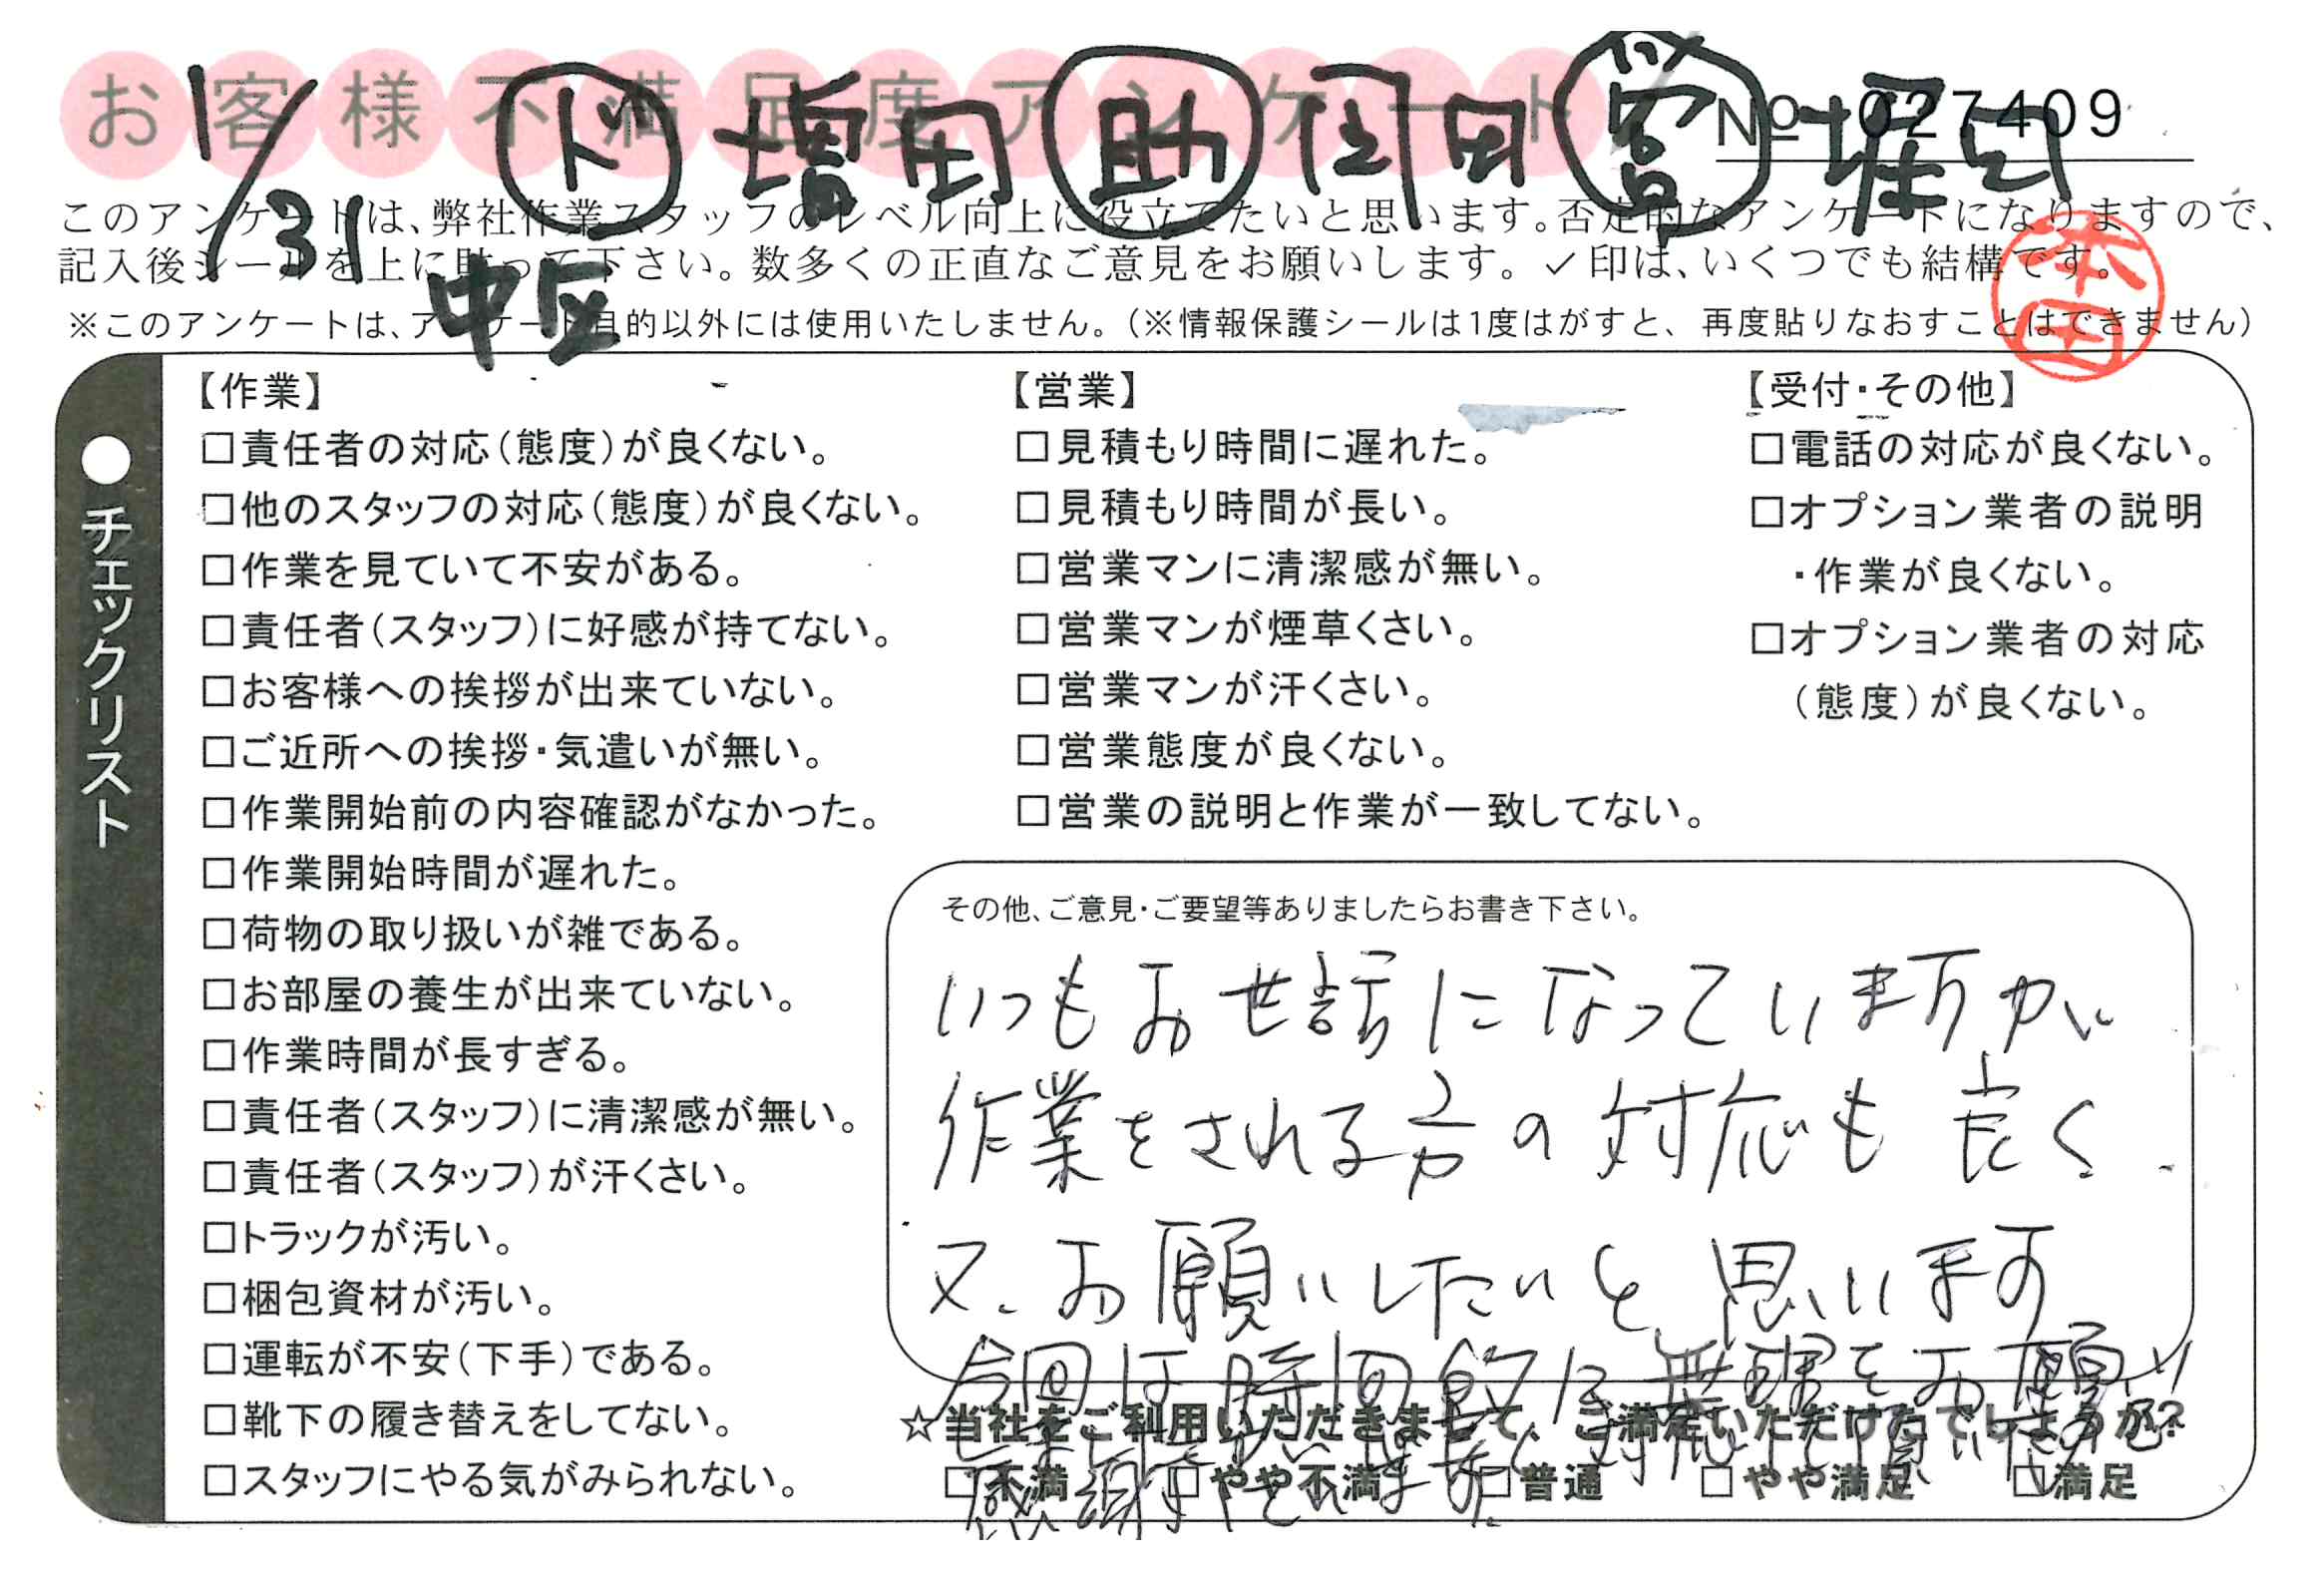 お客様不満足度アンケート
No 027409
1/31 ド 増田 助 岡田 営 堀
中区
このアンケートは、弊社作業スタッフのレベル向上に役立てたいと思います。否定的なアンケートになりますので、
記入後シールを上に貼って下さい。数多くの正直なご意見をお願いします。✓印は、いくつでも結構です。
※このアンケートは、アンケート目的以外には使用いたしません。(※情報保護シールは1度はがすと、再度貼りなおすことはできません)
本田
●チェックリスト
【作業】
□責任者の対応(態度)が良くない。
□他のスタッフの対応(態度)が良くない。
□作業を見ていて不安がある。
□責任者(スタッフ)に好感が持てない。
□お客様への挨拶が出来ていない。
□ご近所への挨拶・気遣いが無い。
□作業開始前の内容確認がなかった。
□作業開始時間が遅れた。
□荷物の取り扱いが雑である。
□お部屋の養生が出来ていない。
□作業時間が長すぎる。
□責任者(スタッフ)に清潔感が無い。
□責任者(スタッフ)が汗くさい。
□トラックが汚い。
□梱包資材が汚い。
□運転が不安(下手)である。
□靴下の履き替えをしてない。
□スタッフにやる気がみられない。
【営業】
□見積もり時間に遅れた。
□見積もり時間が長い。
□営業マンに清潔感が無い。
□営業マンが煙草くさい。
□営業マンが汗くさい。
□営業態度が良くない。
□営業の説明と作業が一致してない。
【受付・その他】
□電話の対応が良くない。
□オプション業者の説明
・作業が良くない。
□オプション業者の対応
(態度)が良くない。
その他、ご意見・ご要望等ありましたらお書き下さい。
いつもお世話になっていますが
作業をされる方の対応も良く
又、お願いしたいと思います
今回は時間的に無理をお願い
☆当社をご利用いただきまして、ご満足いただけたでしょうか?
□不満 □やや不満 □普通 □やや満足 □満足
感謝しています。